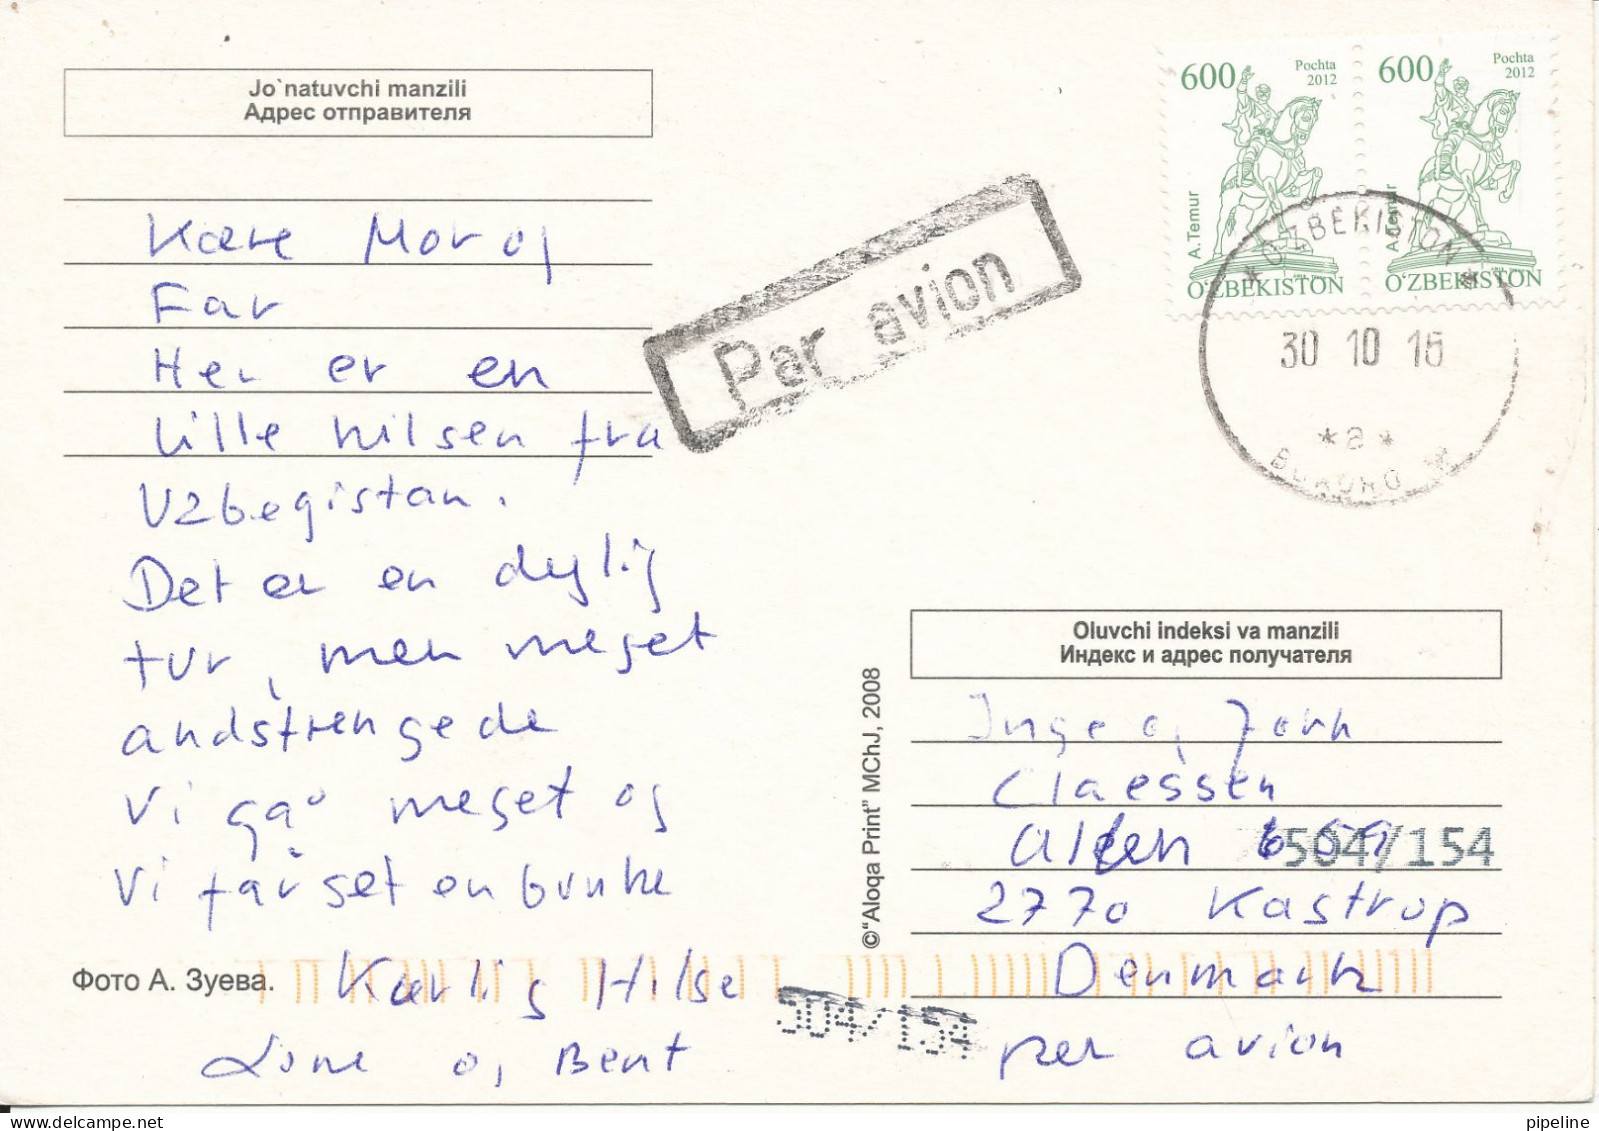 Jo`natuvchi manzili
Адрес отправителя
Kære Mor og
Far
Her er en
lille hilsen fra
Uzbegistan.
Det er en dejlig
tur, men meget
andstrengede
Vi gå meget og
Vi får set en bunke
Kærlig Hilse
Lone og Bent
Фото А. Зуева.
Par avion
600 Pochta 2012
A. Temur
O'ZBEKISTON
600 Pochta 2012
A. Temur
O'ZBEKISTON
* O'ZBEKISTON *
30 10 15
* a *
BUXORO
©"Aloqa Print" MChJ, 2008
Oluvchi indeksi va manzili
Индекс и адрес получателя
Inge og Jørn
Claessen
Alléen 59
504/154
2770 Kastrup
Denmark
per avion
504/154
pipeline